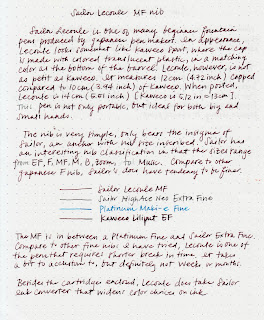 Sailor Lecoule MF nib
Sailor Lecoule is one of many beginner fountain
pens produced by Japanese pen makers. In appearance,
Lecoule looks somewhat like Kaweco Sport, where the cap
is made with colored translucent plastic, in a matching
color at the bottom of the barrel. Lecoule, however, is not
as petit as Kaweco. It measures 12cm (4.72 inch) capped
compared to 10cm (3.94 inch) of Kaweco. When posted,
Lecoule is 14cm (5.51 inch) [Kaweco is 5.12 in = 13cm].
This pen is not only portable, but ideal for both big and
small hands.
The nib is very simple, only bears the insignia of
Sailor, an anchor with nib size inscribed. Sailor has
an interesting nib classification in that the sizes range
from EF, F, MF, M, B, Zoom, to Music. Compare to other
Japanese F nib, Sailor's does have tendency to be finer.
Sailor Lecoule MF
Sailor HighAce Neo Extra Fine
Platinum Maki-e Fine
Kaweco Liliput EF
The MF is in between a Platinum Fine and Sailor Extra Fine.
Compare to other fine nibs I have tried, Lecoule is one of
the pens that requires shorter break in time. It takes
a bit to accustom to, but definitely not week or months.
Besides the cartridge enclosed, Lecoule does take Sailor
ink converter that widens color choices on ink.